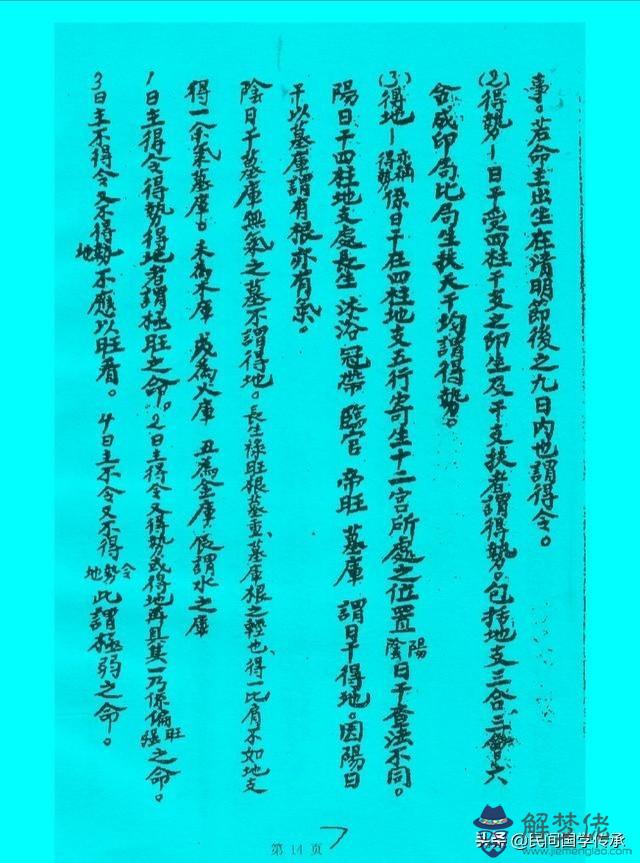 事。若命主出生在清明節後之九日內也謂得令。
(2)得勢—日干受四柱干支之印生及干支扶者謂得勢。包括地支三合三會六
合。成印局比局生扶天干均謂得勢。
(3)得地—亦稱得勢係日干在四柱地支五行寄生十二宮所處之位置陰陽日干查法不同。
陽日干四柱地支處長生 沐浴 冠帶 臨官 帝旺 墓庫 謂日干得地。因陽日
干以墓庫謂有根亦有氣。
陰日干墓庫無氣之墓不謂得地。長生祿旺根墓重、墓庫根之輕也、得一比肩不如地支
得一余氣墓庫。未為木庫 戌為火庫 丑為金庫 辰謂水之庫
1日主得令得勢得地者謂極旺之命。2日主得令又得勢或得地再且其一乃係偏旺强之命。
3日主不得令又不得勢地不應以旺看。4日主不令又不得令勢地此謂極弱之命。
第 14 頁
7
头条 @民间国学传承
解梦佬
www.jiemenglao.com